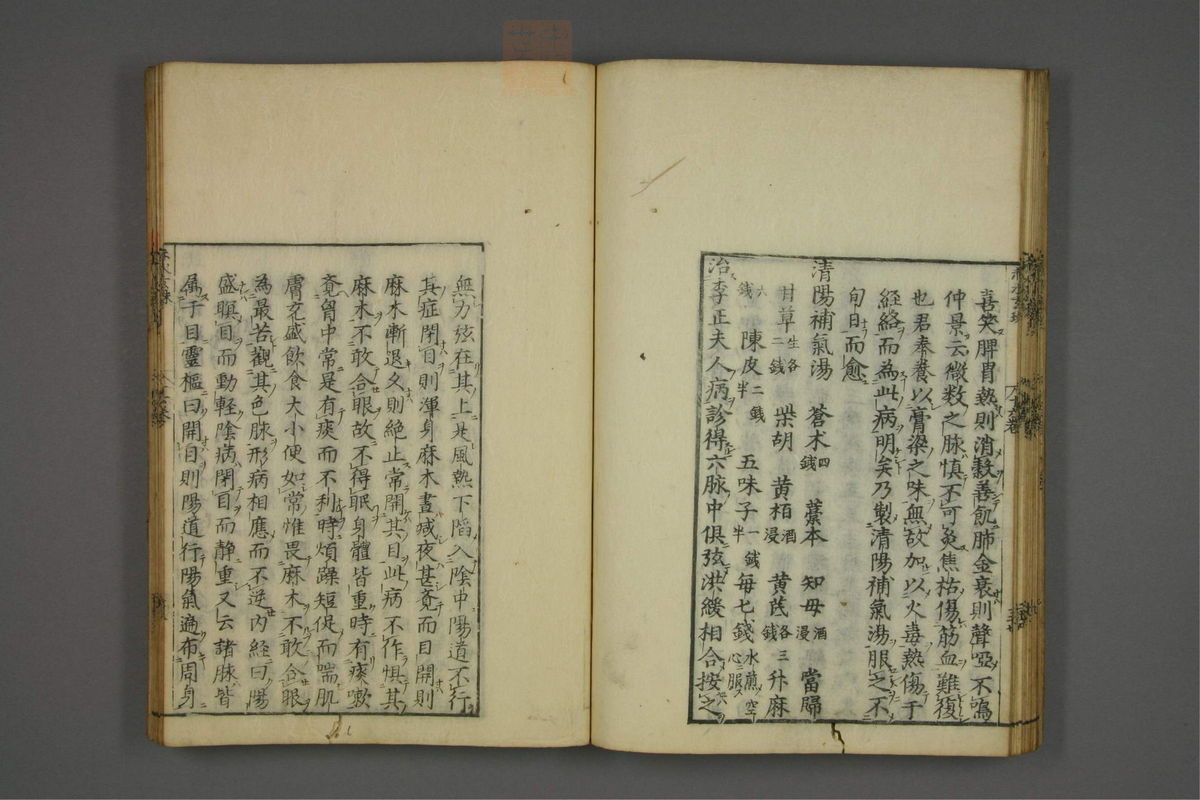 喜笑脾胃熱則消穀善飢肺金衰則聲啞不鳴
仲景云微数之脉慎不可灸焦枯傷筋血難復
也君奉養以膏梁之味無故加以火毒熱傷于
経絡而為此病明矣乃製清陽補氣湯服之不
旬日而愈
清陽補氣湯 蒼朮四錢 藁本 知母酒浸 當歸
甘草生各二錢 柴胡 黄栢酒浸 黄芪各三錢 升麻
六錢 陳皮二錢半 五味子一錢半 每七錢水煎空心服
治李正夫人病診得六脉中俱弦洪緩相合按之
無力弦在其上是風熱下䧟入陰中陽道不行
其症閉目則渾身麻木晝减夜甚竟而目開則
麻木漸退久則絶止常開其目此病不作惧其
麻木不敢合眼故不得眠身體皆重時有痰嗽
竟胷中常是有痰而不利時煩躁短促而喘肌
膚充盛飲食大小便如常惟畏麻木不敢合眼
為最苦觀其色脉形病相應而不逆内經曰陽
盛瞋目而動輕陰病閉目而静重又云諸脉皆
属于目靈樞曰開目則陽道行陽氣遍布周身